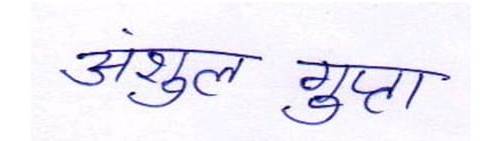 अंशुल गुप्ता